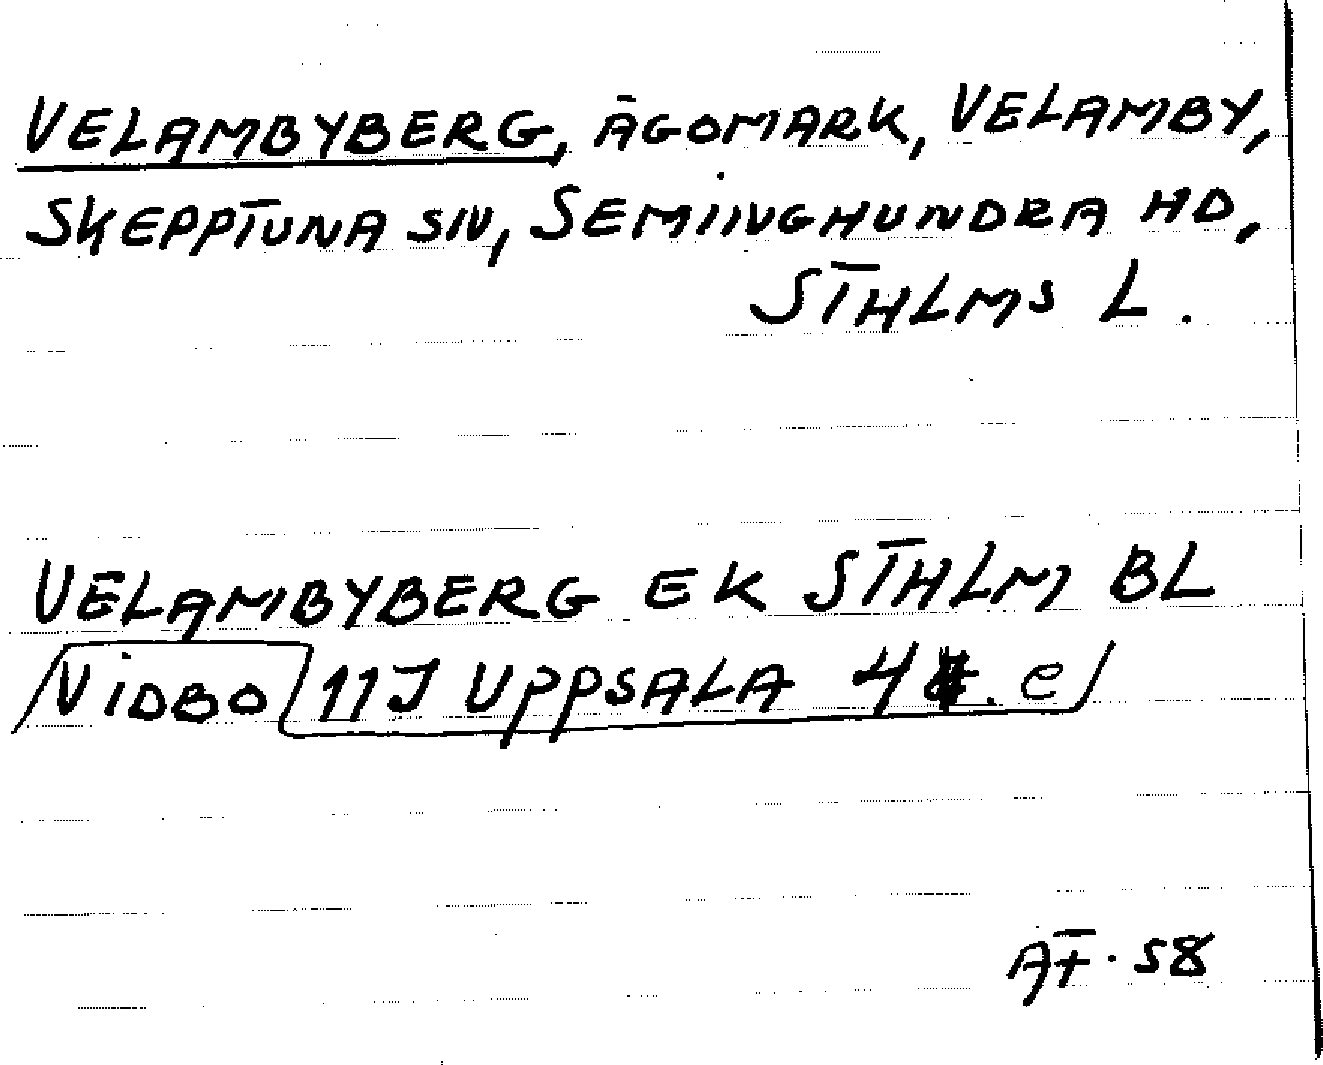 VELAMBYBERG, ÄGOMARK, VELAMBY,
SKEPPTUNA SN, SEMINGHUNDRA HD,
STHLMS L.
VELAMBYBERG EK STHLM BL
VIDBO 11J UPPSALA 4 . e
AF. 58